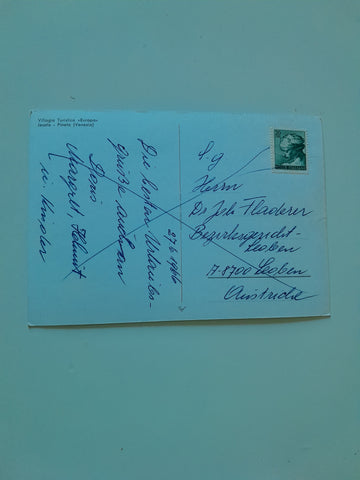 Villaggio Turistico «Europa»
Jesolo - Pineta (Venezia)
27/6 1966
Die besten Urlaubs-
grüße senden
Doris
Margret, Helmut
u. Kinder
S. g.
Herrn
Dr. Joh. Fladerer
Bezirksgericht-
Leoben
A-8700 Leoben
Austriche